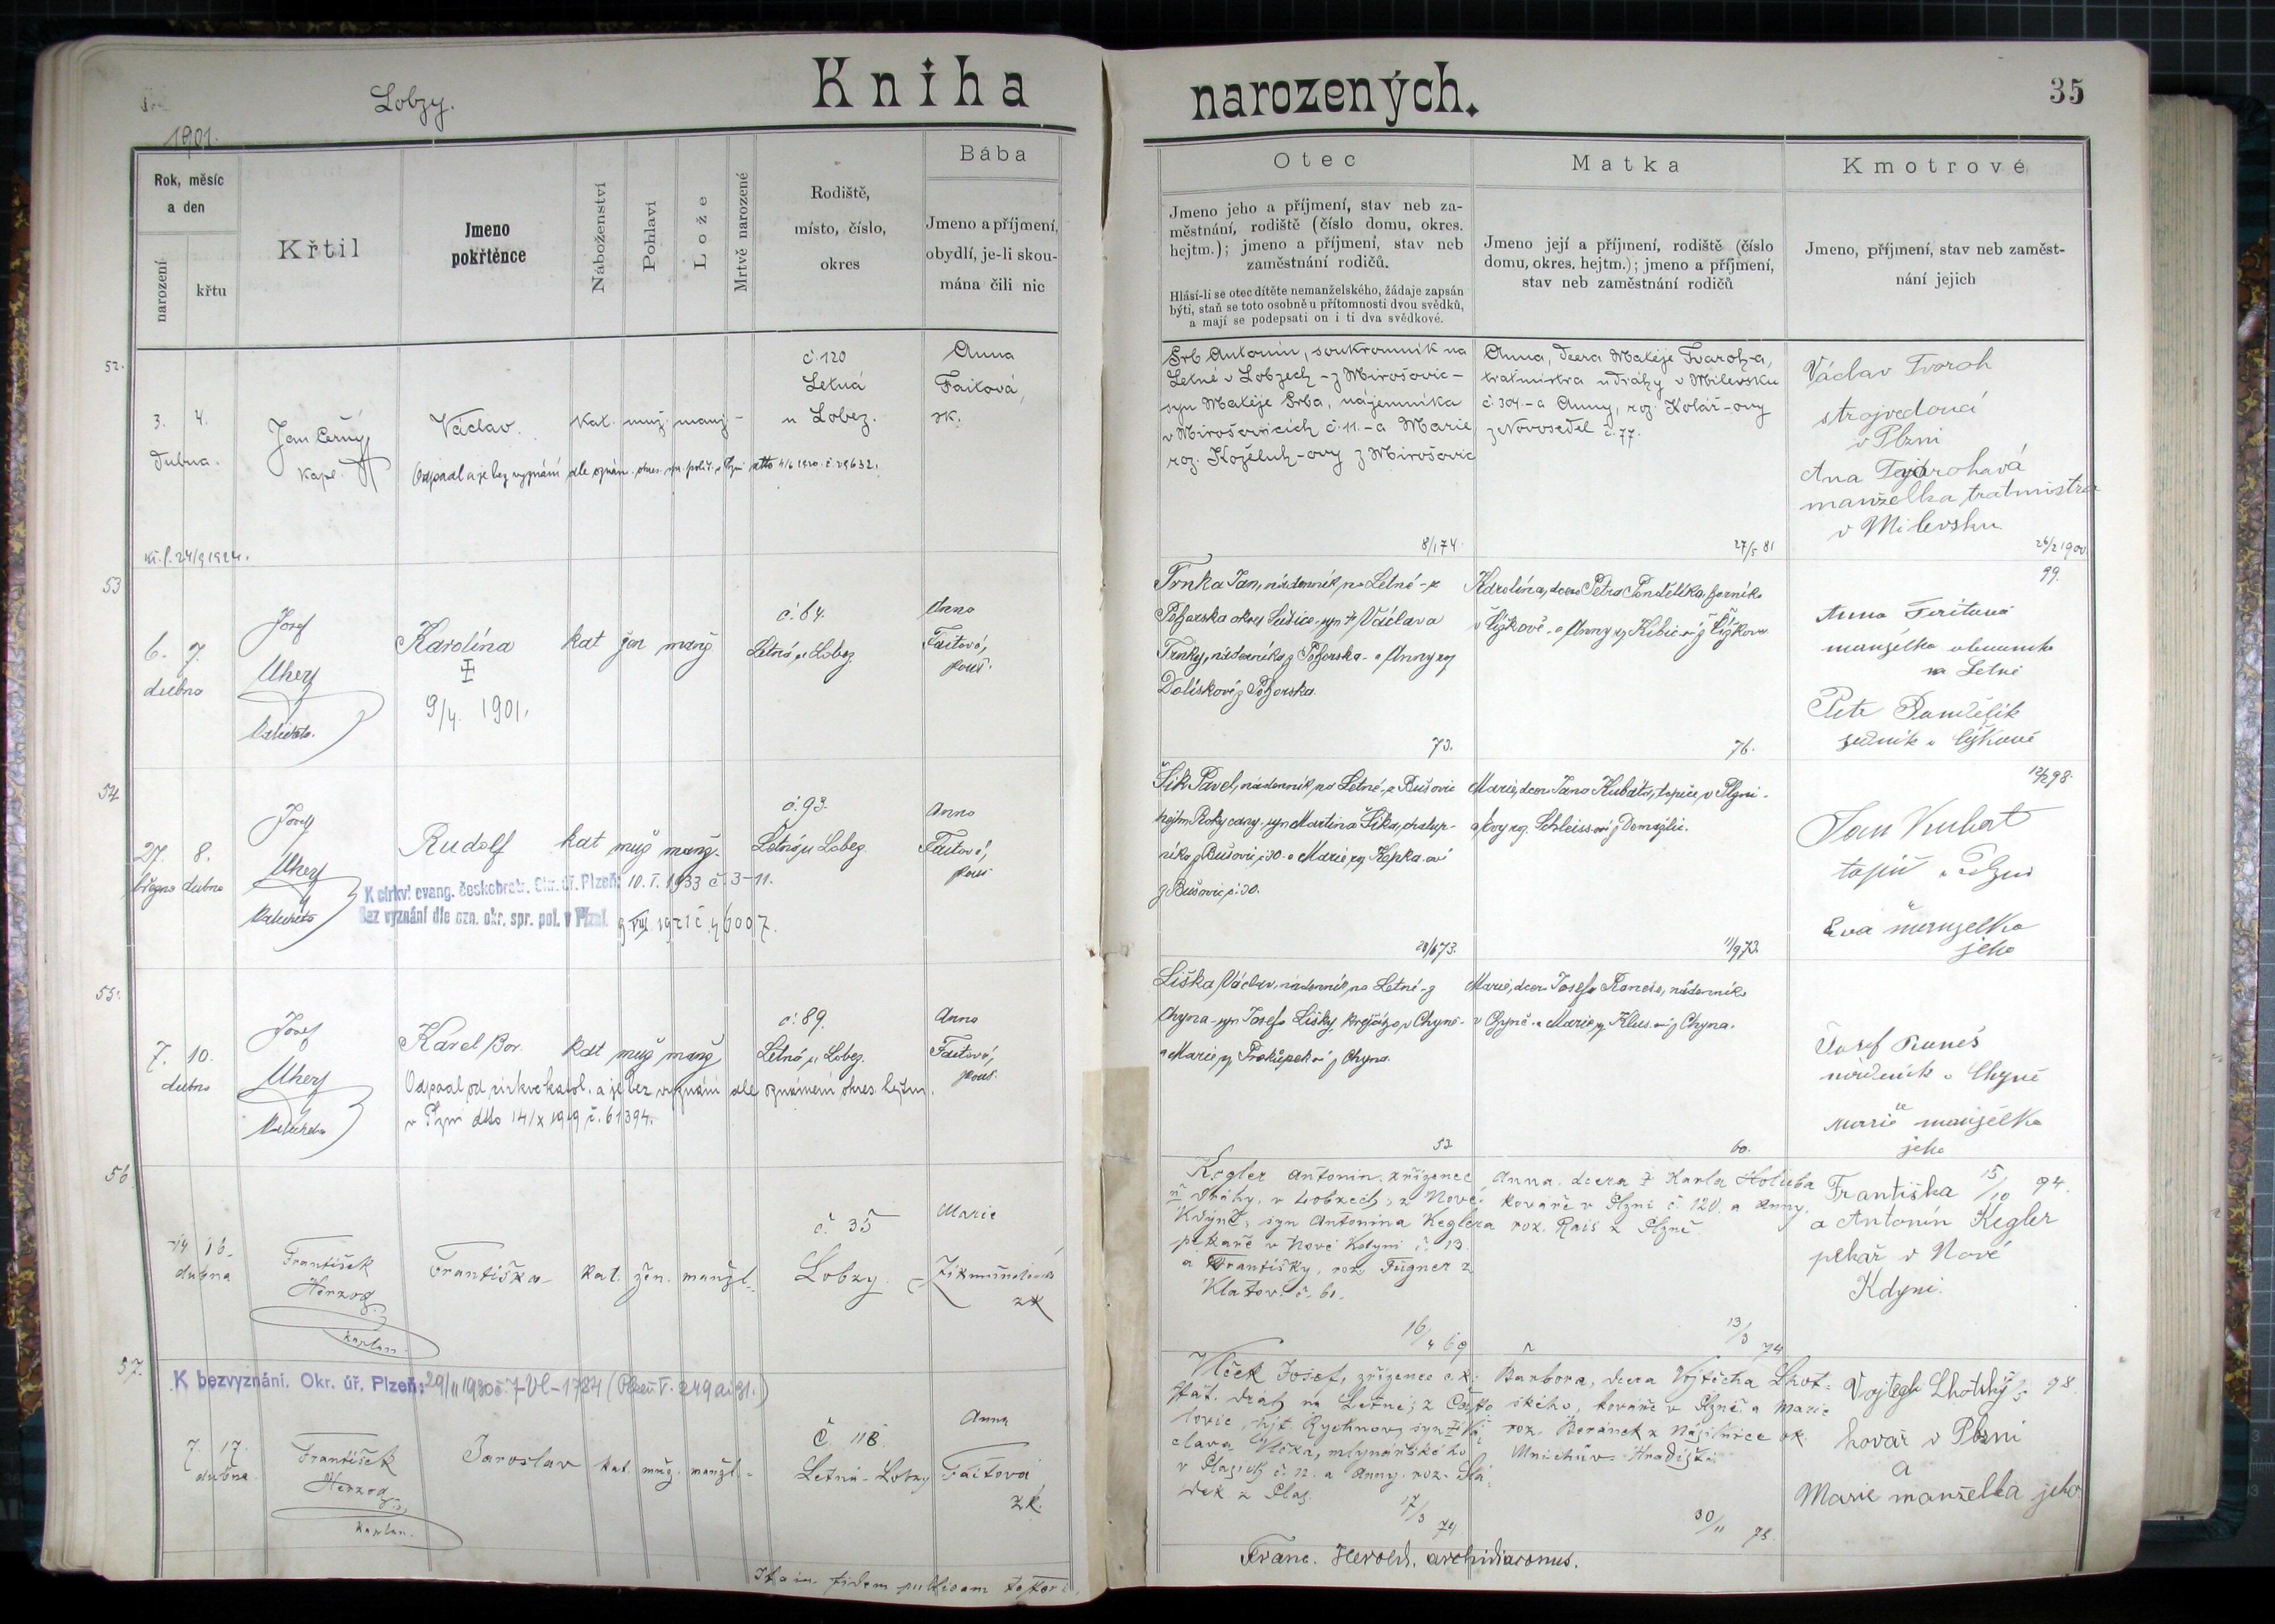 Lobzy.
Kniha narozených.
35
1901.
Rok, měsíc
a den
narození
křtu
Křtil
Jmeno
pokřtěnce
Náboženství
Pohlaví
Lože
Mrtvě narozené
Rodiště,
místo, číslo,
okres
Bába
Jmeno a příjmení,
obydlí, je-li skou-
mána čili nic
Otec
Jmeno jeho a příjmení, stav neb za-
městnání, rodiště (číslo domu, okres.
hejtm.); jmeno a příjmení, stav neb
zaměstnání rodičů.
Hlásí-li se otec dítěte nemanželského, žádaje zapsán
býti, staň se toto osobně u přítomnosti dvou svědků,
a mají se podepsati on i ti dva svědkové.
Matka
Jmeno její a příjmení, rodiště (číslo
domu, okres. hejtm.); jmeno a příjmení,
stav neb zaměstnání rodičů
Kmotrové
Jmeno, příjmení, stav neb zaměst-
nání jejich
52.
3. 4.
dubna.
Jan Černý
kapl.
Václav.
kat. muž. manž -
č. 120
Letná
u Lobez.
Anna
Faitová,
zk.
Odpadl a je bez vyznání dle oznám. okres. spr. polit. v Plzni dtto 4/6 1920. č. 29632.
24/9 1924.
Srb Antonín, soukromník na
Letné v Lobzech - z Mirošovic -
syn Matěje Srba, nájemníka
v Mirošovicích č. 11. - a Marie
roz. Koželuh-ovy z Mirošovic
8/1 74.
Anna, dcera Matěje Tvaroh-a,
traťmistra u dráhy v Milevsku
č. 304. - a Anny, roz. Kolář-ovy
z Novosedel č. 77.
27/5 81
Václav Tvoroh
strojvedoucí
v Plzni
Ana
manželka tratmistra
v Milevsku
26/2 1900.
53
6. 7.
dubna
Josef
Uherý
Karolína
9/4. 1901.
kat žen manž
č. 64.
Letná u Lobez
Anna
Faitová,
zkouš.
Trnka Jan, nádenník na Letné - z
Požorska okres Sušice, syn † Václava
Trnky, nádeníka z Požorska - a Anny roz
Dolískové z Požorska.
73.
Karolína, dcera Petra Pandělíka,
v Čížkově - a Anny roz z Čížkova
76.
99.
Anna
manželka
na Letné
Petr Pandělík
v Čížkově
54
27. 8.
března dubna
Josef
Uherý
Rudolf
kat muž manž.
č. 93.
Letná u Lobez
Anna
Faitová,
zkouš
K církvi evang. českobratr. Okr. úř. Plzeň: 10. I. 1933 č. 3-11.
Bez vyznání dle ozn. okr. spr. pol. v Plzni. 9. VIII. 1921 č. 46007.
Šik Pavel, nádenník na Letné - z Bušovic
hejtm Rokycany - syn Martina Šika, chalup-
níka z Bušovic č. 30 - a Marie roz Kepka-ové
z Bušovic č. 30.
28/6 73.
Marie, dcera Jana Kubáta, topiče v Plzni -
a Evy roz. Schleiss-ové z Domažlic.
11/9 73.
12/2 98.
Jan Kubat
topič v Plzni
Eva manželka
jeho
55.
7. 10.
dubna
Josef
Uherý
Karel Bor.
kat muž manž
č. 89.
Letná u Lobez
Anna
Faitová,
zkouš.
Odpadl od církve katol. a je bez vyznání dle oznámení okres. hejtm.
v Plzni ddto 14/X 1919 č. 61394.
Liška Václav, nádenník na Letné - z
Chyna - syn Josefa Lišky, krejčího v Chyně -
a Marie roz Prokůpek-ové z Chyna.
52
Marie, dcera Josefa Roneše, nádenníka
v Chyně - a Marie roz Klus-ové z Chyna.
60.
Josef Runeš
nádeník v Chyně
Marie manželka
jeho
56
14 16.
dubna
František
Herzog
kaplan.
Františka
kat. žen. manžl.
č. 35
Lobzy.
Marie
Zikmundová
zk
Kegler Antonín, zřízenec
dráhy, v Lobzech, z Nové
Kdyně, syn Antonína Keglera
pekaře v Nové Kdyni č. 13.
a Františky, roz. Fügner z
Klatov. č. 61.
16/4 69
Anna, dcera † Karla Holuba
kováře v Plzni č. 120. a Anny
roz. Rais z Plzně.
13/3 74
Františka 15/10 94.
a Antonín Kegler
pekař v Nové
Kdyni.
57.
K bezvyznání. Okr. úř. Plzeň: 29/11 1930 č. 7-Vl-1784 (Plzeň V. 249 ai 31.)
7. 17.
dubna
František
Herzog
kaplan.
Jaroslav
kat. muž. manžl. -
Č. 118.
Letná - Lobzy
Anna
Faitová
zk.
Vlček Josef, zřízenec c.k.
stát. drah na Letné; z Často
lovic, hejt. Rychnov, syn † Vá
clava Vlčka, mlynářského
v Plasích č. 12. a Anny. roz. Slá
dek z Plas.
17/3 74
Barbora, dcera Vojtěcha Lhot-
ského, kováře v Plzni a Marie
roz. Beránek z ok.
Mnichův Hradiště.
30/11 75.
Vojtěch Lhotský 98
kovář v Plzni
a
Marie manželka jeho.
Ita in fidem publicam testor:
Franc. Herold, archidiaconus.